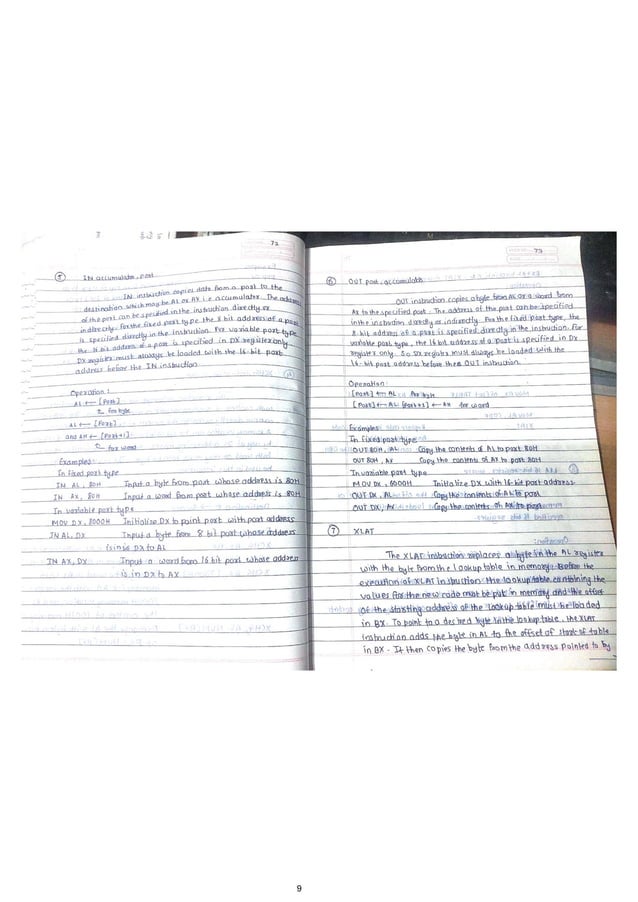 72
5 IN accumulator, port
IN instruction copies data from a port to the
destination which may be AL or AX i.e accumulator. The address
of the port can be specified in the instruction directly or
indirectly. For the fixed port type the 8 bit address of a port
is specified directly in the instruction. For variable port type
the 16 bit address of a port is specified in DX register only
DX register must always be loaded with the 16 bit port
address before the IN instruction
Operation:
AL ← [Port]
for byte
AL ← [Port]
and AH ← [Port+1]
for word
Examples
In fixed port type
IN AL, 80H Input a byte from port whose address is 80H
IN AX, 80H Input a word from port whose address is 80H
In variable port type
MOV DX, 8000H Initialize DX to point port with port address
IN AL, DX Input a byte from 8 bit port whose address
is in DX to AL
IN AX, DX Input a word from 16 bit port whose address
is in DX to AX
73
6 OUT port, accumulator
OUT instruction copies a byte from AL or a word from
AX to the specified port. The address of the port can be specified
in the instruction directly or indirectly. For the fixed port type, the
8 bit address of a port is specified directly in the instruction. For
variable port type, the 16 bit address of a port is specified in DX
register only. So DX register must always be loaded with the
16-bit port address before the OUT instruction.
Operation:
[Port] ← AL For byte
[Port] ← AL [Port+1] ← AH for word
Examples
In Fixed port type
OUT 80H, AL Copy the contents of AL to port 80H
OUT 80H, AX Copy the contents of AX to port 80H
In variable port type
MOV DX, 8000H Initialize DX with 16 bit port address
OUT DX, AL Copy the contents of AL to port
OUT DX, AX Copy the contents of AX to port
7 XLAT
The XLAT instruction replaces a byte in the AL register
with the byte from the lookup table in memory. Before the
execution of XLAT instruction the lookup table containing the
values for the new code must be put in memory and the offset
of the starting address of the lookup table must be loaded
in BX. To point to a desired byte in the lookup table, the XLAT
instruction adds the byte in AL to the offset of start of table
in BX. It then copies the byte from the address pointed to by
9